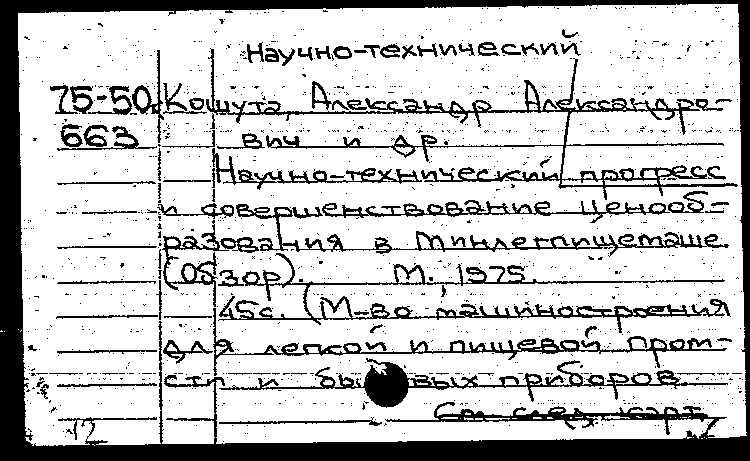 Научно-технический
75-50 Кошута, Александр Александро-
663 вич и др.
Научно-технический прогресс
и совершенствование ценооб-
разования в Минлегпищемаше.
(Обзор). М., 1975.
45с. (М-во машиностроения
для легкой и пищевой пром-
сти и бы вых приборов
См. след. карт.
12